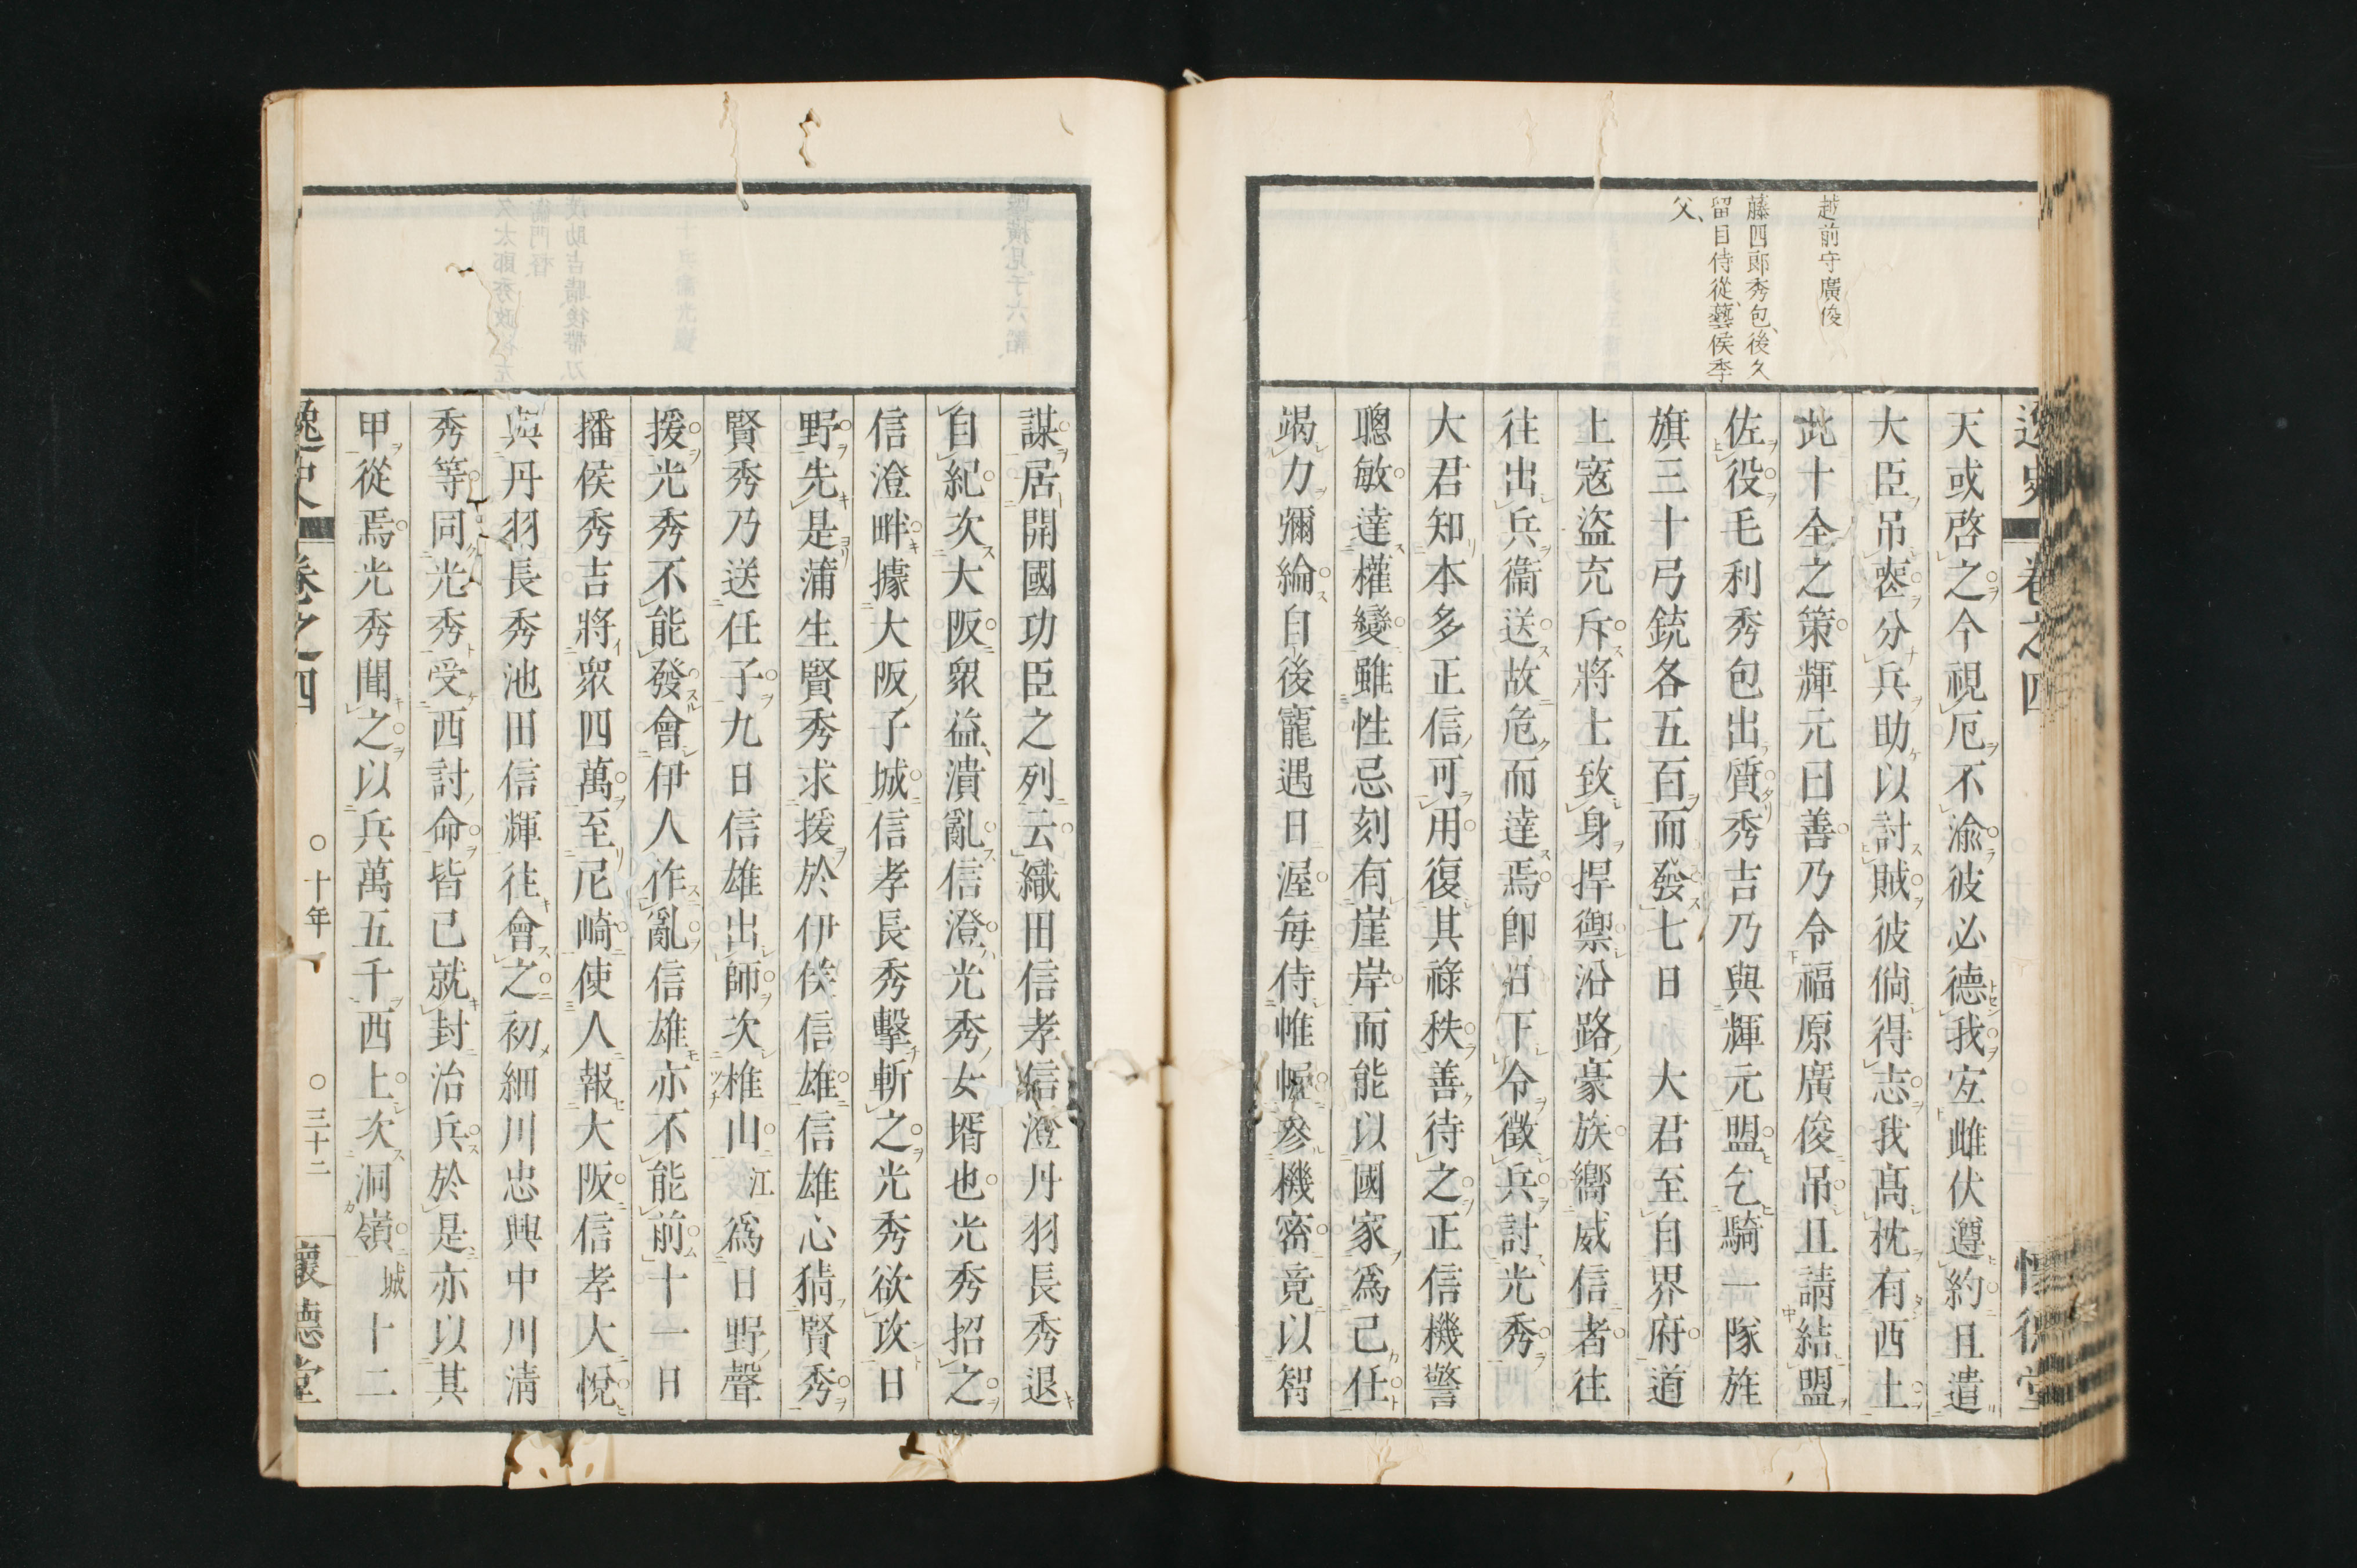 越前守廣俊
藤四郎秀包、後久
留目侍從、藝侯季
父、
逸史 卷之四 懷德堂
天或啓之今視厄不渝彼必德我宐雌伏遵約且遣
大臣吊喪分兵助以討賊彼倘得志我髙枕有西土
此十全之策輝元曰善乃令福原廣俊吊且請結盟
佐役毛利秀包出質秀吉乃與輝元盟乞騎一隊旌
旗三十弓銃各五百而發七日 大君至自界府道
上寇盜充斥將士致身捍禦沿路豪族嚮威信者往
往出兵衞送故危而達焉卽日下令徵兵討光秀
大君知本多正信可用復其祿秩善待之正信機警
聰敏達權變雖性忌刻有崖岸而能以國家爲己任
竭力彌綸自後寵遇日渥每侍帷幄參機密竟以智
謀居開國功臣之列云織田信孝信澄丹羽長秀退
自紀次大阪衆益潰亂信澄光秀女壻也光秀招之
信澄畔據大阪子城信孝長秀擊斬之光秀欲攻日
野先是蒲生賢秀求援於伊侯信雄信雄心猜賢秀
賢秀乃送任子九日信雄出師次椎山江爲日野聲
援光秀不能發會伊人作亂信雄亦不能前十一日
播侯秀吉將衆四萬至尼崎使人報大阪信孝大悅
與丹羽長秀池田信輝往會之初細川忠興中川淸
秀等同光秀受西討命皆已就封治兵於是亦以其
甲從焉光秀聞之以兵萬五千西上次洞嶺城十二
逸史 卷之四 ○十年 ○三十二 懷德堂